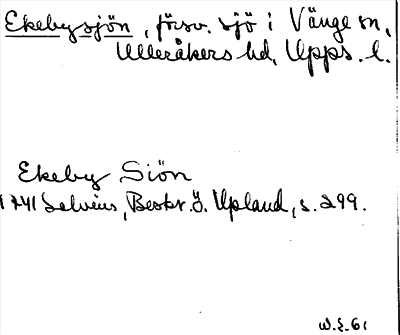 Ekebysjön, försv. sjö i Vänge sn,
Ulleråkers hd, Upps. l.
Ekeby Siön
1741 Salvius, Beskr. ö. Upland, s. 299.
W.E. 61